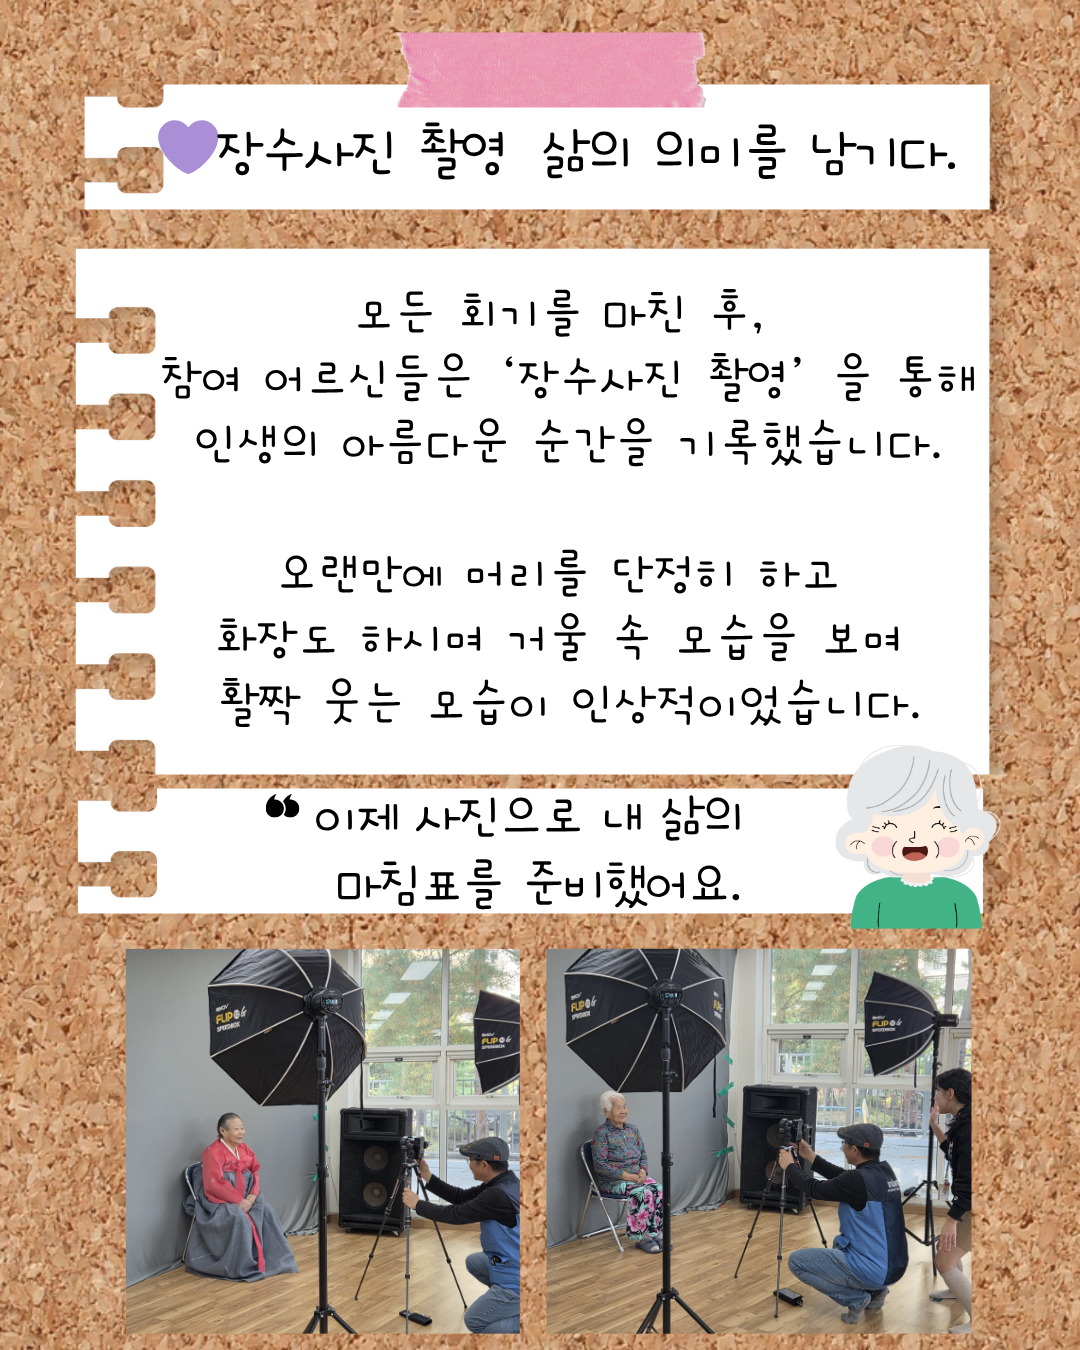 장수사진 촬영 삶의 의미를 남기다.
모든 회기를 마친 후,
참여 어르신들은 ‘장수사진 촬영’ 을 통해
인생의 아름다운 순간을 기록했습니다.
오랜만에 머리를 단정히 하고
화장도 하시며 거울 속 모습을 보며
활짝 웃는 모습이 인상적이었습니다.
❝ 이제 사진으로 내 삶의
마침표를 준비했어요.
FLIP
SPEEDBOX
FLIP
SPEEDBOX
FLIP
SPEEDBOX
FLIP
SPEEDBOX